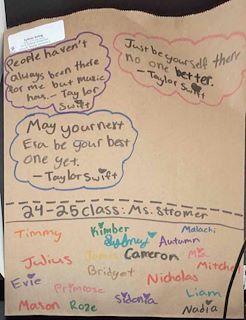 People haven't
always been there
for me but music
has. - Taylor
Swift
Just be yourself there
no one better.
- Taylor
Swift
May your next
Era be your best
one yet.
- Taylor Swift
24-25 class: Ms. Stromer
Timmy
Kimber
Malachi
Sydney
Autumn
Julius
James
Cameron
Mia
Mitche
Bridget
Evie
Nicholas
Primrose
Liam
Mason
Roze
Sidonia
Nadia